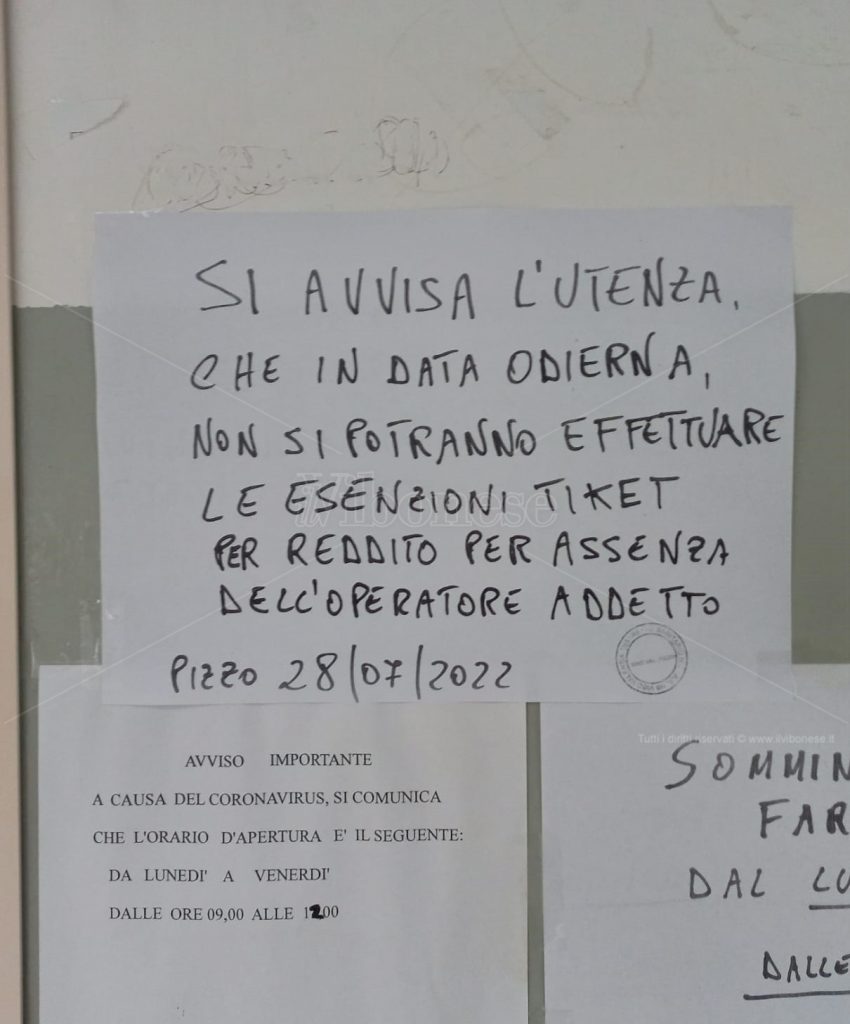 SI AVVISA L'UTENZA,
CHE IN DATA ODIERNA,
NON SI POTRANNO EFFETTUARE
LE ESENZIONI TIKET
PER REDDITO PER ASSENZA
DELL'OPERATORE ADDETTO
PIZZO 28/07/2022
il Vibonese
Tutti i diritti riservati © www.ilvibonese.it
AVVISO IMPORTANTE
A CAUSA DEL CORONAVIRUS, SI COMUNICA
CHE L'ORARIO D'APERTURA E' IL SEGUENTE:
DA LUNEDI' A VENERDI'
DALLE ORE 09,00 ALLE 12,00
SOMMIN
FAR
DAL LU
DALLE